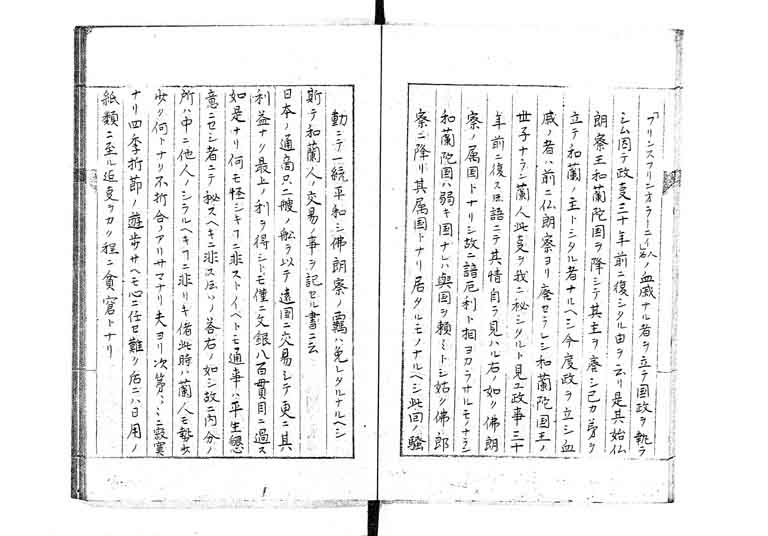 「プリンスフリンオラーニィ」人名ノ血戚ナル者ヲ立テ国政ヲ執ラ
シム因テ政変三十年前ニ復シタル由ヲ云リ是其始仏
朗察王和蘭陀国ヲ降シテ其主ヲ廃シ己カ弟ヲ
立テ和蘭ノ主トシタル者ナルヘシ今度政ヲ立シ血
戚ノ者ハ前ニ仏朗察ヨリ廃セラレシ和蘭陀国王ノ
世子ナラン蘭人此変ヲ我ニ秘シタルト見ユ政事三十
年前ニ復ス 語ニテ其情自ラ見ハル右ノ如ク佛朗
察ノ属国トナリシ故ニ諳厄利ト相ヨカラサルモノナラン
和蘭陀国ハ弱キ国ナレハ與国ヲ頼ミトシ姑ク佛郎
察ニ降リ其属国トナリ居タルモノナルヘシ此回ノ騒
動ニテ一統平和シ佛朗察ノ羈ハ免レタルナルヘシ
斯テ和蘭人ノ交易ノ事ヲ記セル書ニ云
日本ノ通商只二艘ノ舩ヲ以テ遠国ニ交易シテ更ニ其
利益ナク最上ノ利ヲ得シトモ僅ニ文銀八百貫目ニ過ス
如是ナリ何モ怪シキフニ非ストイヘトモ通事ハ平生懇
意ニセシ者ニテ秘スヘキニ非ス ノ答右ノ如シ故ニ内分ノ
所ハ中ニ他人ノシラルヘキフニ非リキ偖此時ハ蘭人モ勢出
少ク何トナリ不折合ノアリサマナリ夫ヨリ次第々々ニ寂寞
ナリ四季折節ノ遊歩サヘモ心ニ任セ難ク后ニハ日用ノ
紙類ニ至ル迠事ヲカク程ニ貧窘トナリ